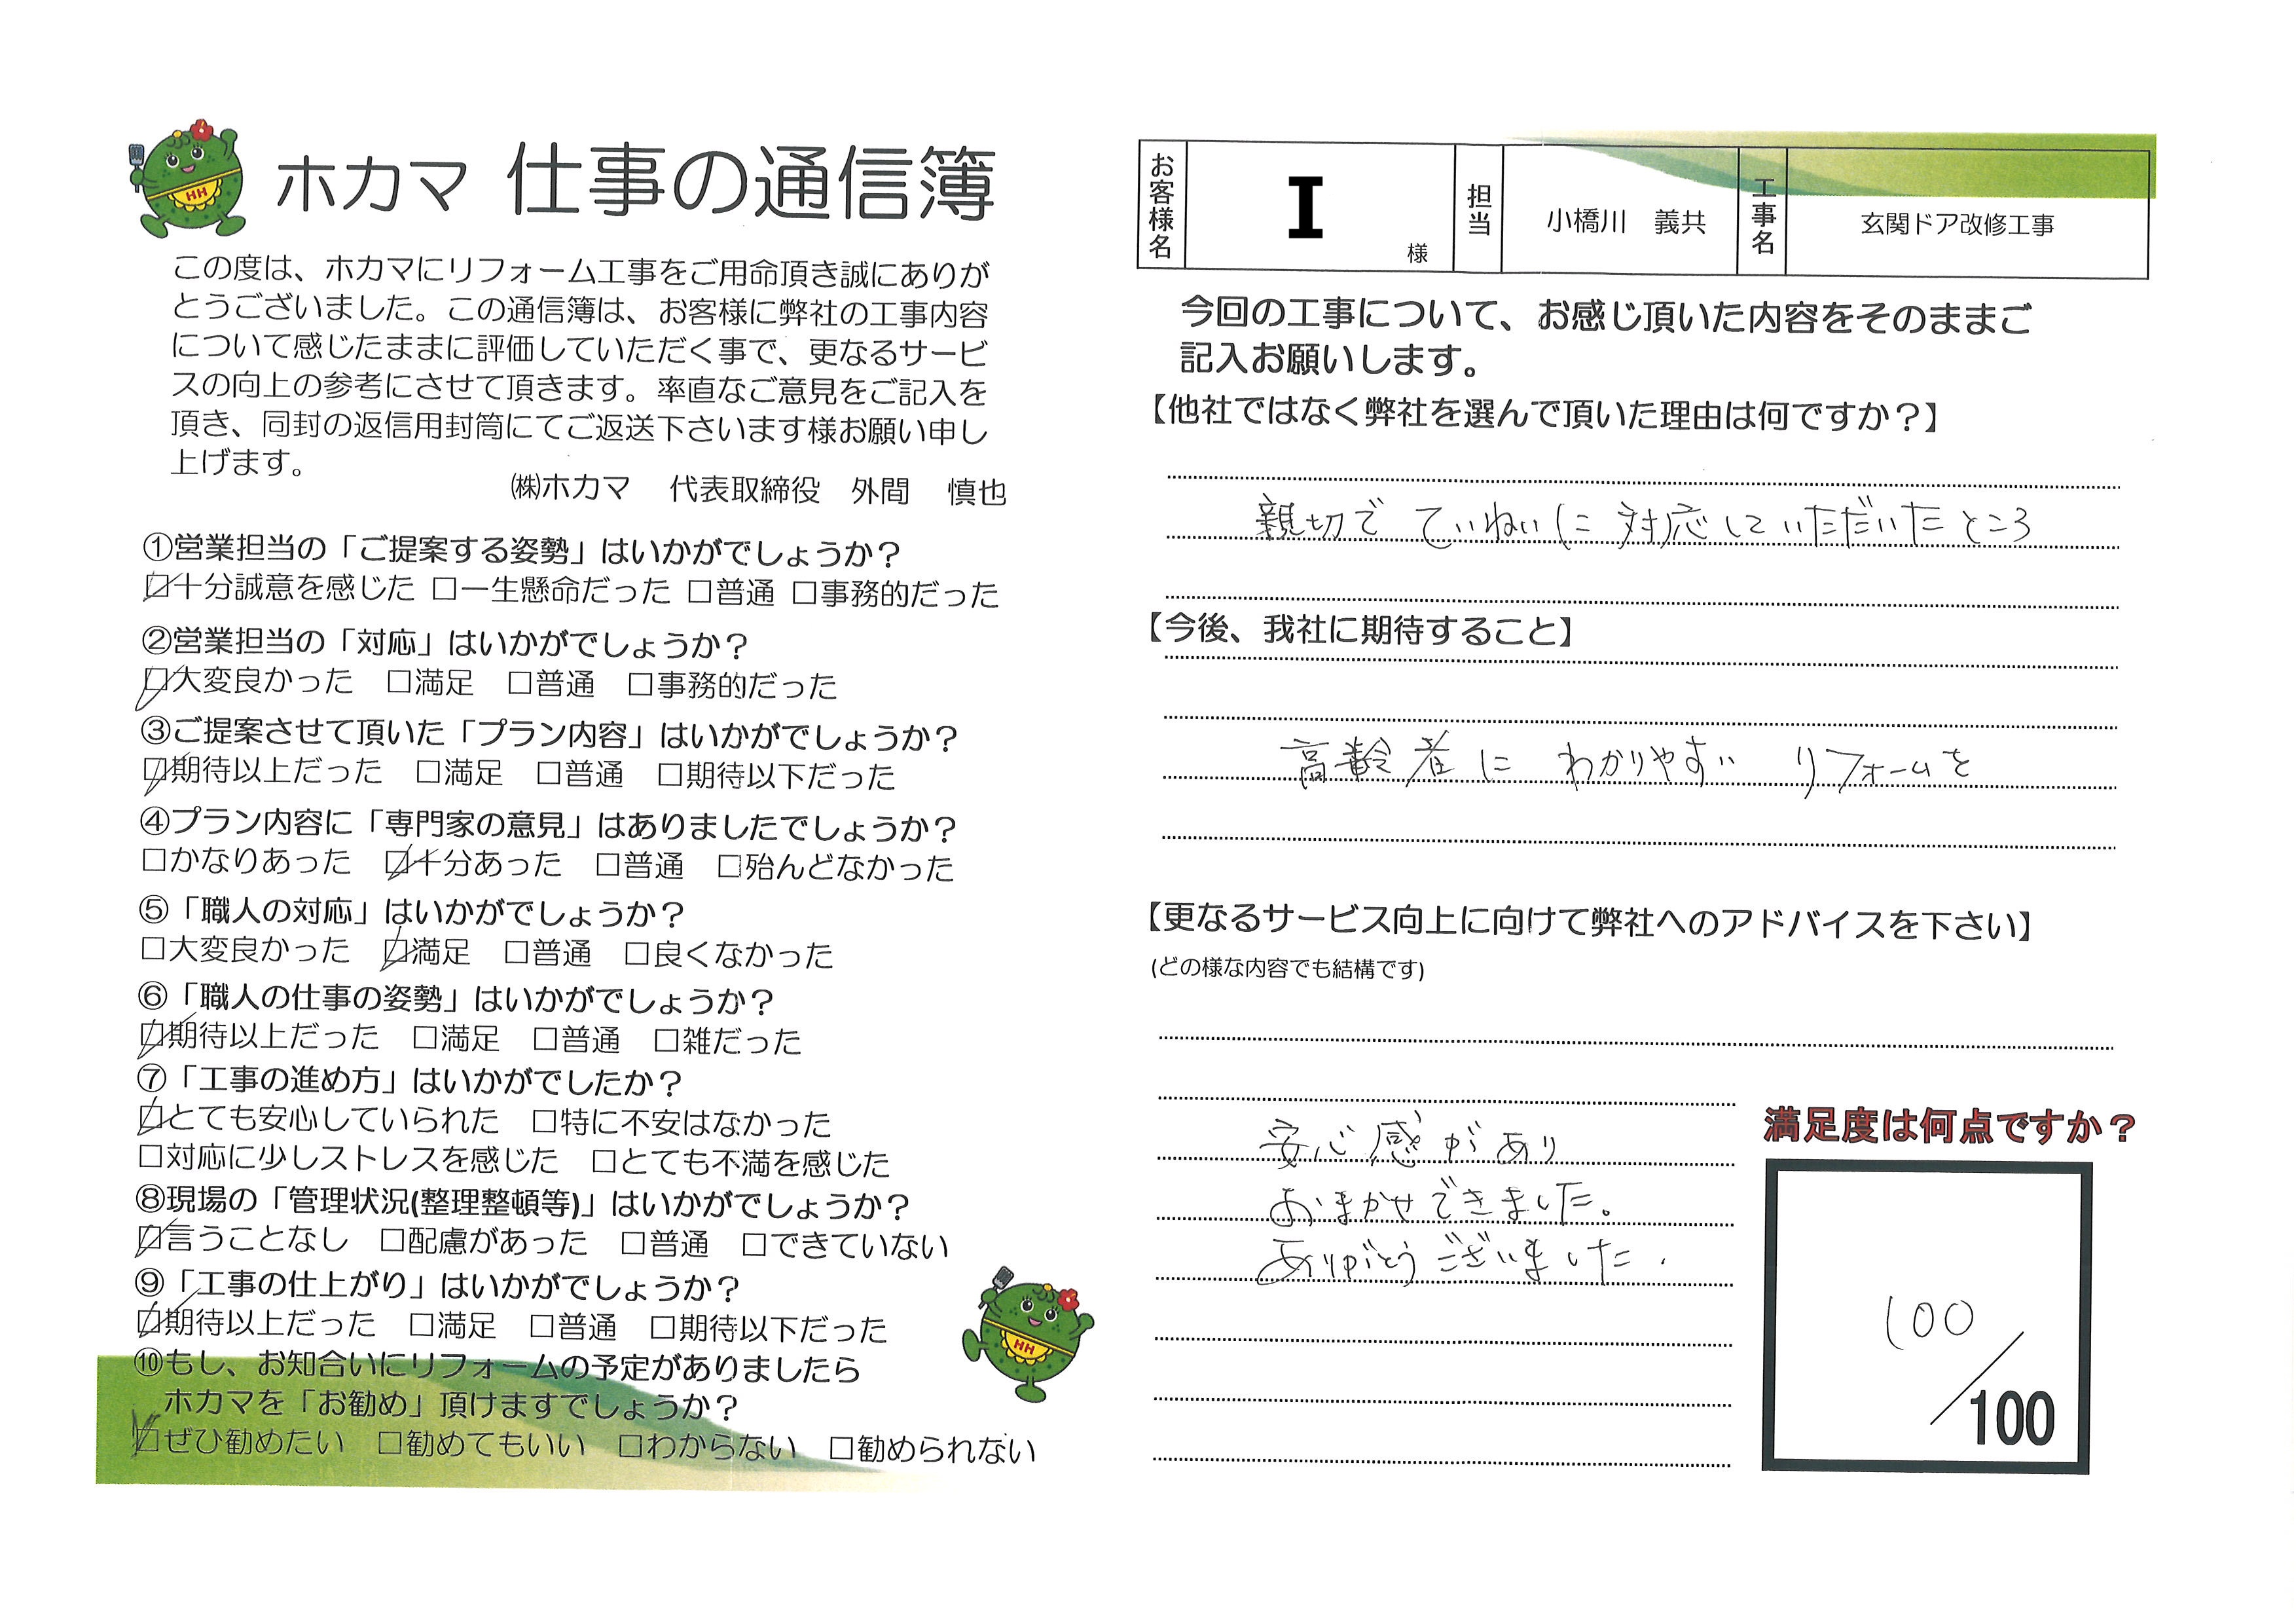 ホカマ 仕事の通信簿
この度は、ホカマにリフォーム工事をご用命頂き誠にありが
とうございました。この通信簿は、お客様に弊社の工事内容
について感じたままに評価していただく事で、更なるサービ
スの向上の参考にさせて頂きます。率直なご意見をご記入を
頂き、同封の返信用封筒にてご返送下さいます様お願い申し
上げます。
㈱ホカマ 代表取締役 外間 慎也
①営業担当の「ご提案する姿勢」はいかがでしょうか？
☑十分誠意を感じた □一生懸命だった □普通 □事務的だった
②営業担当の「対応」はいかがでしょうか？
☑大変良かった □満足 □普通 □事務的だった
③ご提案させて頂いた「プラン内容」はいかがでしょうか？
☑期待以上だった □満足 □普通 □期待以下だった
④プラン内容に「専門家の意見」はありましたでしょうか？
□かなりあった ☑十分あった □普通 □殆んどなかった
⑤「職人の対応」はいかがでしょうか？
□大変良かった ☑満足 □普通 □良くなかった
⑥「職人の仕事の姿勢」はいかがでしょうか？
☑期待以上だった □満足 □普通 □雑だった
⑦「工事の進め方」はいかがでしたか？
☑とても安心していられた □特に不安はなかった
□対応に少しストレスを感じた □とても不満を感じた
⑧現場の「管理状況(整理整頓等)」はいかがでしょうか？
☑言うことなし □配慮があった □普通 □できていない
⑨「工事の仕上がり」はいかがでしょうか？
☑期待以上だった □満足 □普通 □期待以下だった
⑩もし、お知合いにリフォームの予定がありましたら
ホカマを「お勧め」頂けますでしょうか？
☑ぜひ勧めたい □勧めてもいい □わからない □勧められない
HH
HH
お客様名 I 様 担当 小橋川 義共 工事名 玄関ドア改修工事
今回の工事について、お感じ頂いた内容をそのままご
記入お願いします。
【他社ではなく弊社を選んで頂いた理由は何ですか？】
親切で ていねいに 対応していただいたところ
【今後、我社に期待すること】
高齢者に わかりやすい リフォームを
【更なるサービス向上に向けて弊社へのアドバイスを下さい】
(どの様な内容でも結構です)
安心感があり
おまかせできました。
ありがとうございました.
満足度は何点ですか？
100
/100